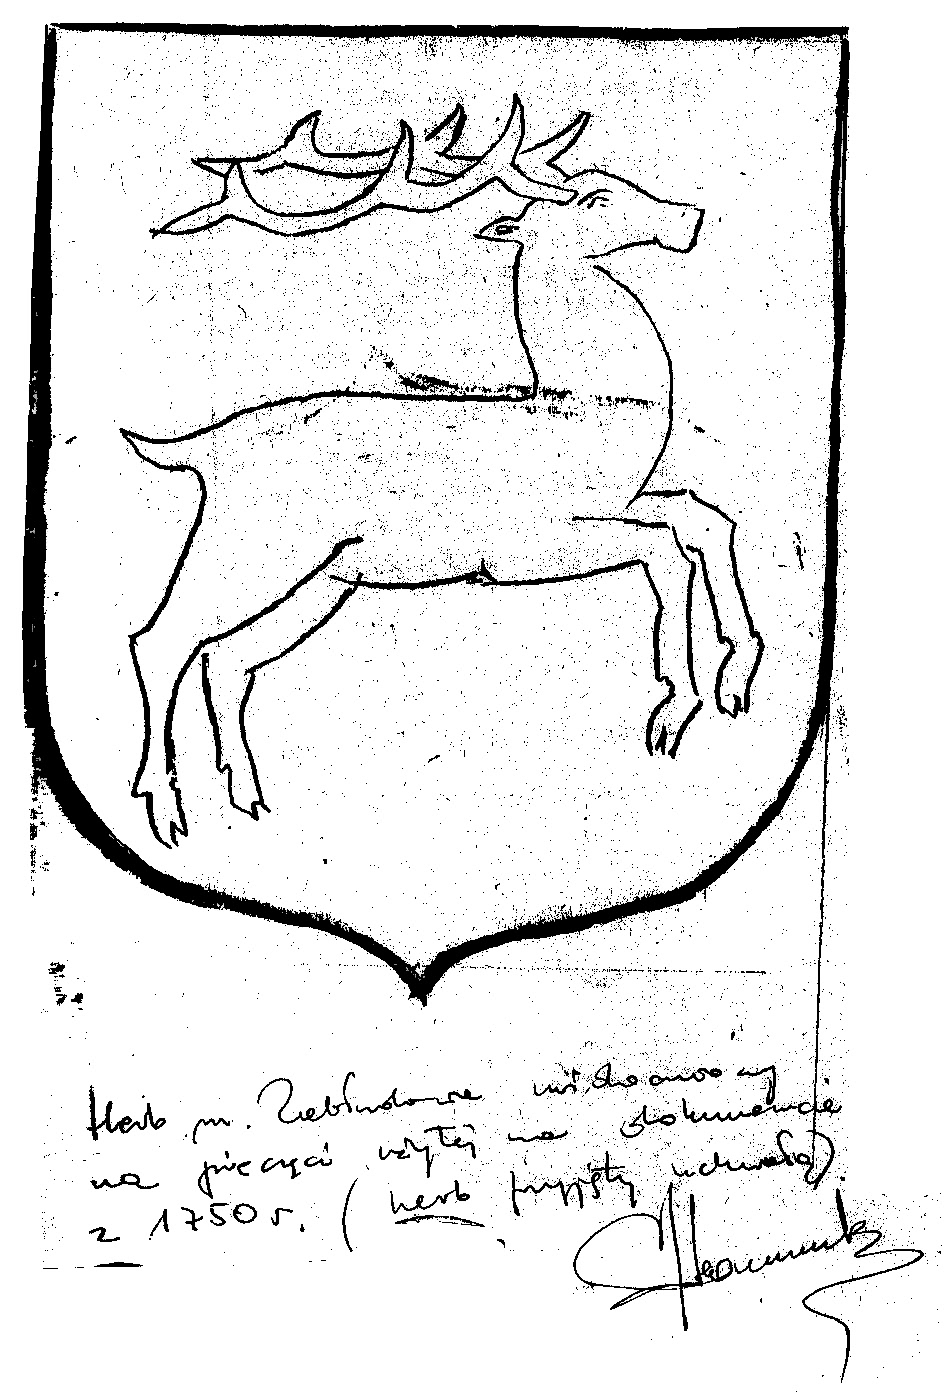 Herb m. Zabłudowa uwidoczniony
na pieczęci użytej na dokumencie
z 1750 r. (herb przyjęty uchwałą)